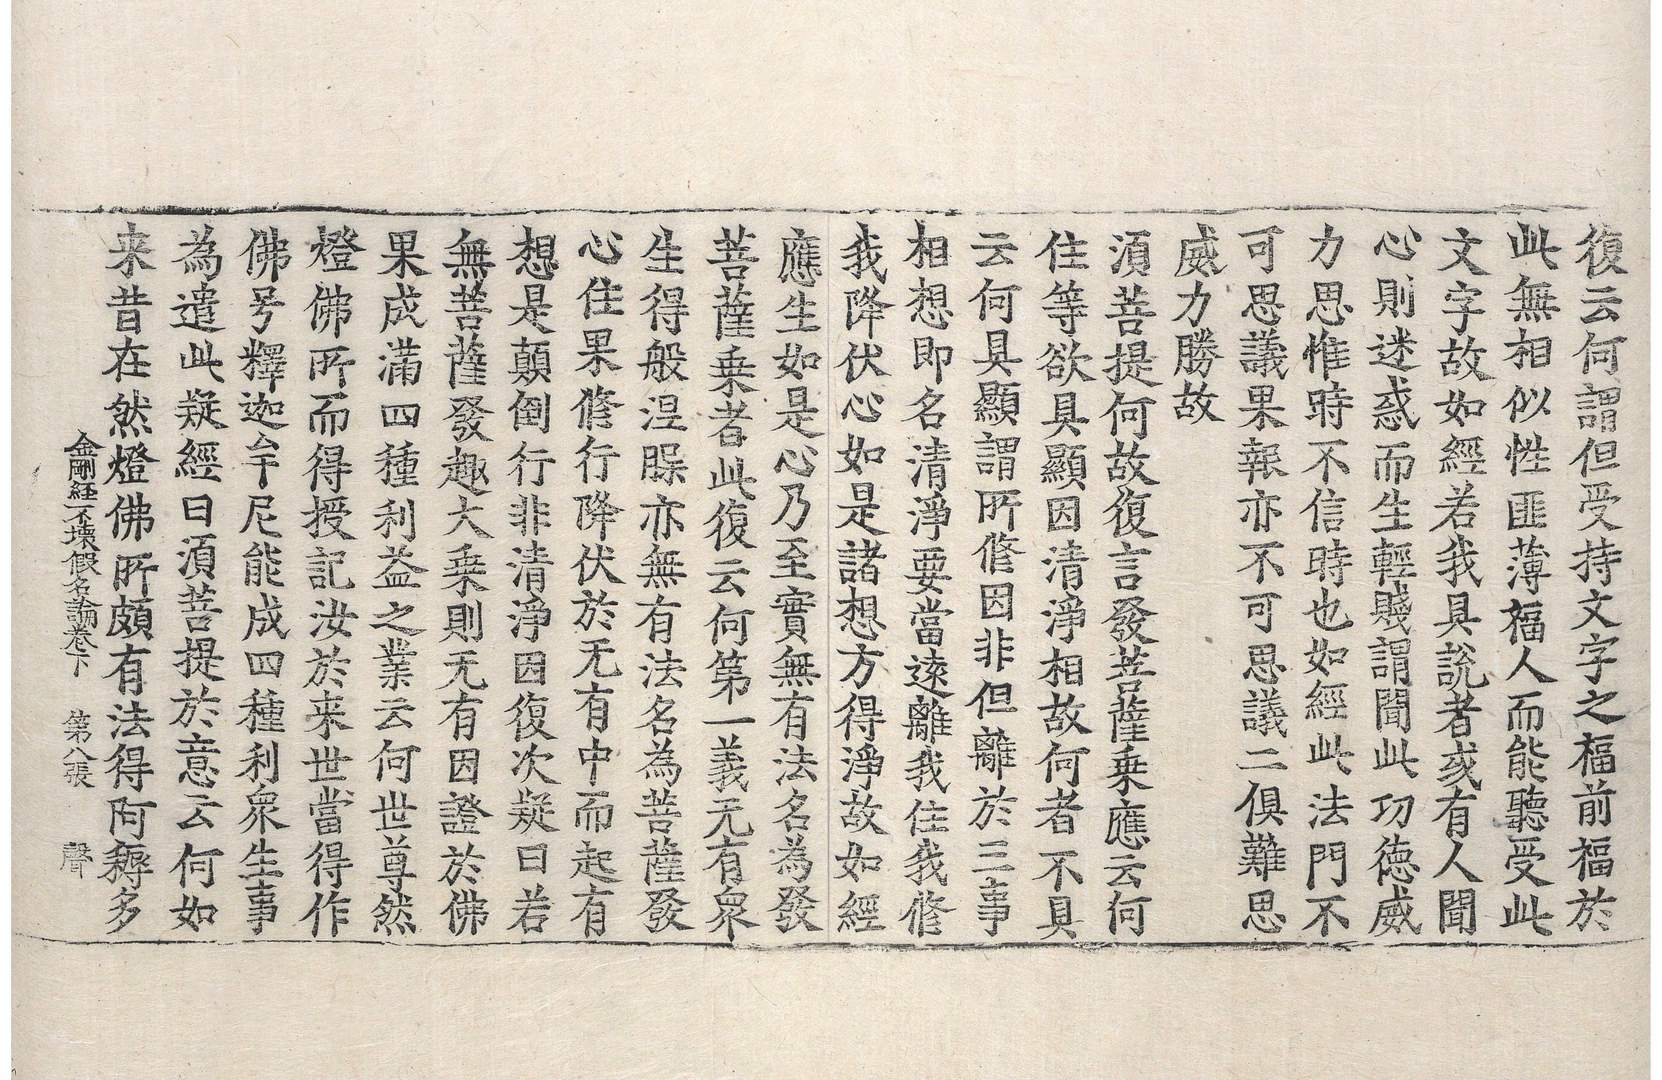 復云何謂但受持文字之福前福於
此無相似性匪薄福人而能聽受此
文字故如經若我具說者或有人聞
心則迷惑而生輕賤謂聞此功德威
力思惟時不信時也如經此法門不
可思議果報亦不可思議二俱難思
威力勝故
須菩提何故復言發菩薩乗應云何
住等欲具顯因清淨相故何者不具
云何具顯謂所修因非但離於三事
相想即名清淨要當遠離我住我修
我降伏心如是諸想方得淨故如經
應生如是心乃至實無有法名為發
菩薩乗者此復云何第一義无有衆
生得般涅槃亦無有法名為菩薩發
心住果修行降伏於无有中而起有
想是顛倒行非清淨因復次疑曰若
無菩薩發趣大乗則无有因證於佛
果成滿四種利益之業云何世尊然
燈佛所而得授記汝於来世當得作
佛号釋迦牟尼能成四種利衆生事
為遣此疑經曰須菩提於意云何如
来昔在然燈佛所頗有法得阿耨多
金剛經不壊假名論卷下 第八張 聲